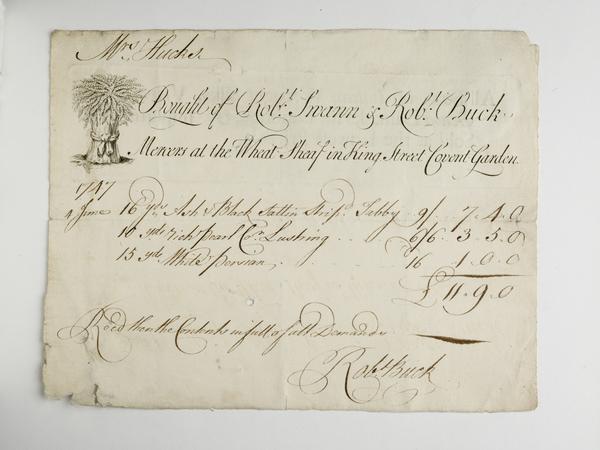 Mrs. Hucks.
Bought of Robt. Swann & Robt. Buck.
Mercers at the Wheat-Sheaf in King Street Covent Garden.
1747
4 June 16 yds Ash & Black Sattin Strip'd Tabby 9/. 7. 4. 0
10 yds rich pearl Cr. Lustring 6/6. 3. 5. 0
15 yds White persian 16 1. 0. 0
£ 11. 9. 0
Recd then the Contents in full of all Demands
Robt Buck